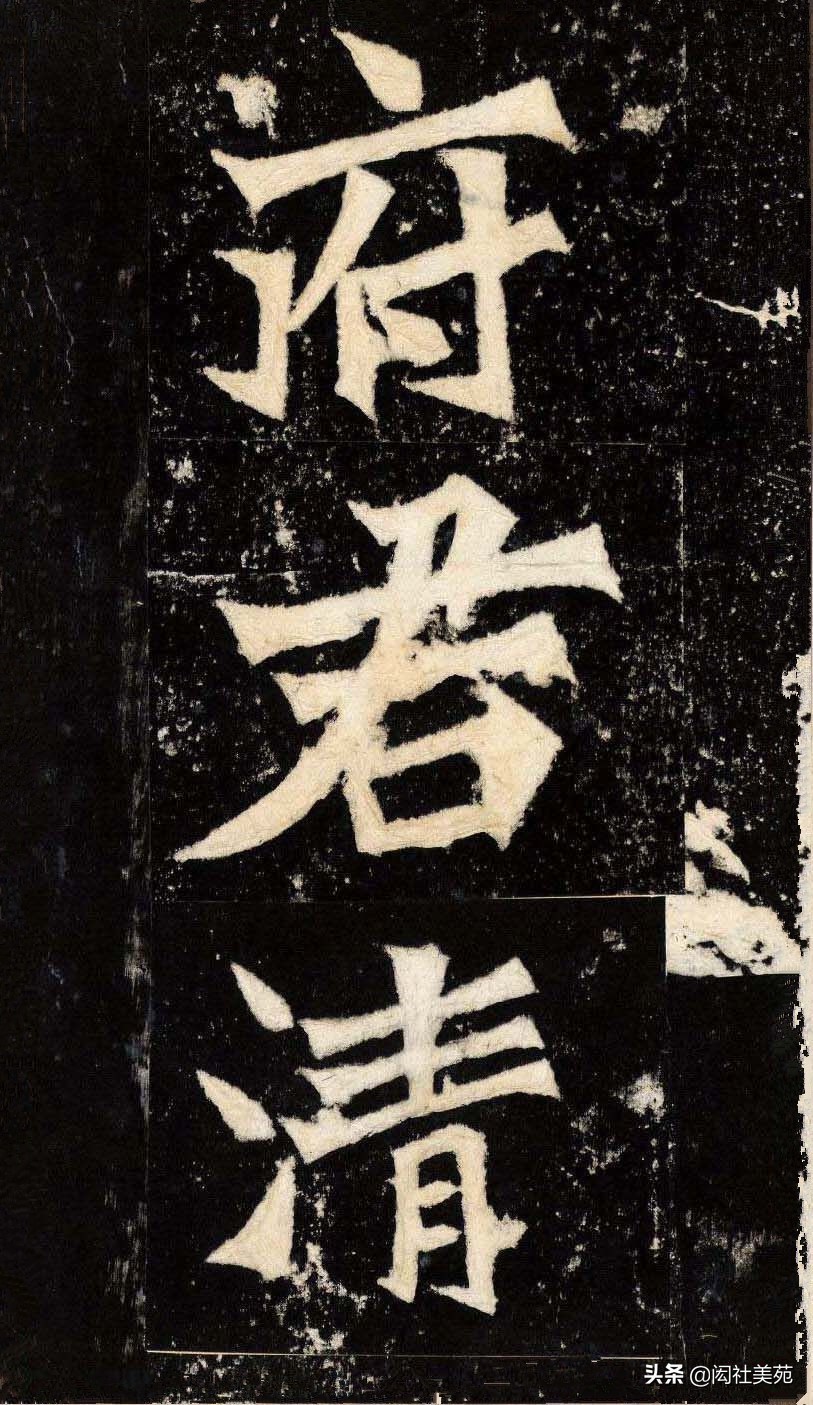 府君清
头条 @闳社美苑